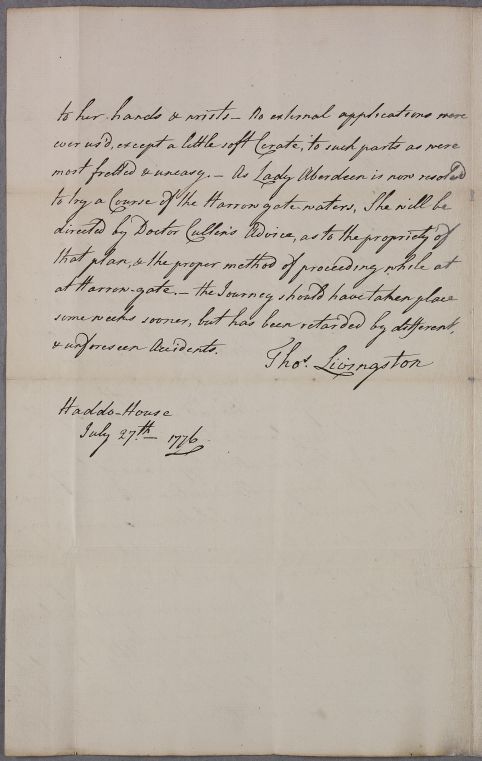 to her hands & wrists – No external applications were
ever us'd, except a little soft Cerate, to such parts as were
most fretted & uneasy. – As Lady Aberdeen is now resolved
to try a Course of the Harrowgate waters, She will be
directed by Doctor Cullen's Advice, as to the propriety of
that plan, & the proper method of proceeding while at
at Harrow-gate. – the Journey should have taken place
some weeks sooner, but has been retarded by different,
& unforeseen Accidents. Thos. Livingston
Haddo-House
July 27.th – 1776